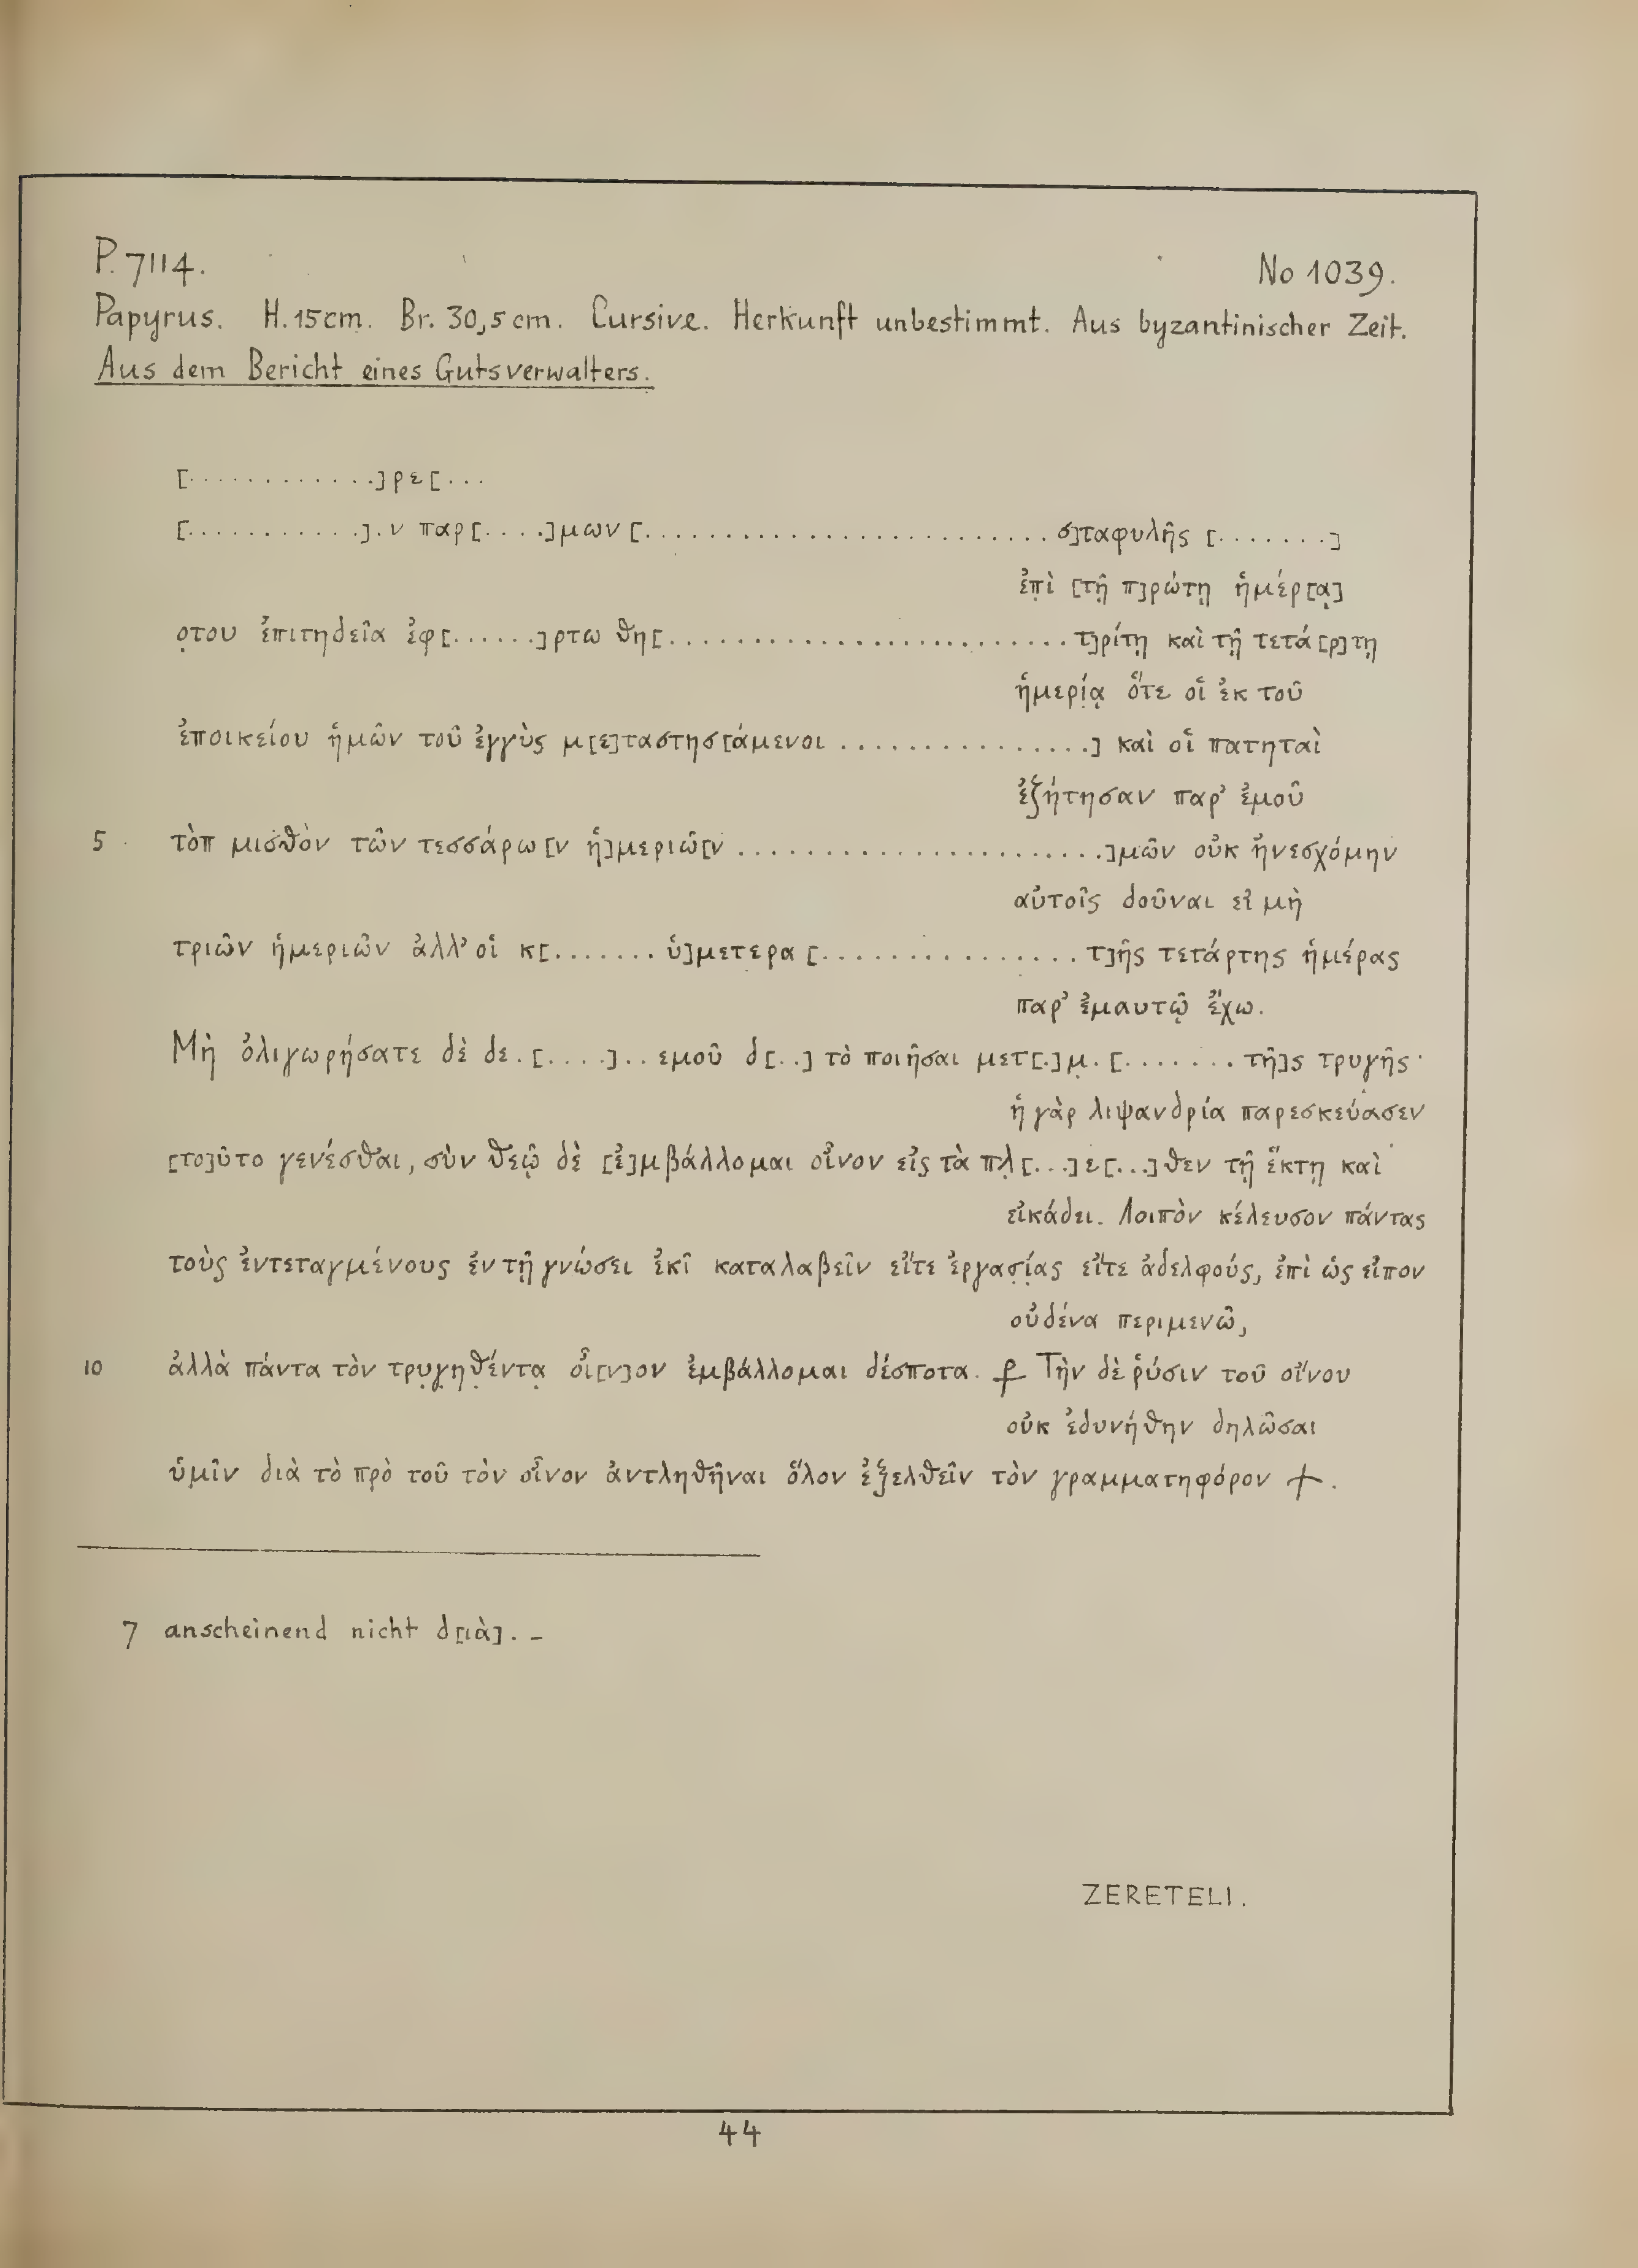 P. 7114. No 1039.
Papyrus. H. 15 cm. Br. 30,5 cm. Cursive. Herkunft unbestimmt. Aus byzantinischer Zeit.
Aus dem Bericht eines Gutsverwalters.
[............]ρε[...
[...........].ν παρ[....]μων[......................... σ]ταφυλῆς [.......]
ἐπὶ [τῇ π]ρώτῃ ἡμέρ[ᾳ]
ọτου ἐπιτηδεῖα ἐφ[......]ρτω θη[......................... τ]ρίτῃ καὶ τῇ τετά[ρ]τῃ
ἡμερίᾳ ὅτε οἱ ἐκ τοῦ
ἐποικείου ἡμῶν τοῦ ἐγγὺς μ[ε]ταστησ[άμενοι ...............] καὶ οἱ πατηταὶ
ἐζήτησαν παρ' ἐμοῦ
5 τὸπ μισθὸν τῶν τεσσάρω[ν ἡ]μεριῶ[ν ......................]μῶν οὐκ ἠνεσχόμην
αὐτοῖς δοῦναι εἰ μὴ
τριῶν ἡμεριῶν ἀλλ' οἱ κ[....... ὑ]μετερα [................ τ]ῆς τετάρτης ἡμέρας
παρ' ἐμαυτῷ ἔχω.
Μὴ ὀλιγωρήσατε δὲ δε.[....]..εμοῦ δ[..] τὸ ποιῆσαι μετ[.]μ̣.[....... τῆ]ς τρυγῆς·
ἡ γὰρ λιψανδρία παρεσκεύασεν
[το]ῦτο γενέσθαι, σὺν θεῷ δὲ [ἐ]μβάλλομαι οἶνον εἰς τὰ πλ̣[...]ε[...]θεν τῇ ἕκτῃ καὶ
εἰκάδει. Λοιπὸν κέλευσον πάντας
τοὺς ἐντεταγμένους ἐν τῇ γνώσει ἐκῖ καταλαβεῖν εἴτε ἐργασ̣ί̣ας εἴτε ἀδελφούς, ἐπὶ ὡς εἶπον
οὐδένα περιμενῶ,
10 ἀλλὰ πάντα τὸν τρυ̣γ̣ηθ̣έντα̣ οἶ[ν]ον ἐμβάλλομαι δέσποτα. ⳨ Τὴν δὲ ῥύσιν τοῦ οἴνου
οὐκ ἐδυνήθην δηλῶσαι
ὑμῖν διὰ τὸ πρὸ τοῦ τὸν οἶνον ἀντληθῆναι ὅλον ἐξελθεῖν τὸν γραμματηφόρον +.
7 anscheinend nicht δ[ιὰ]. –
ZERETELI.
44